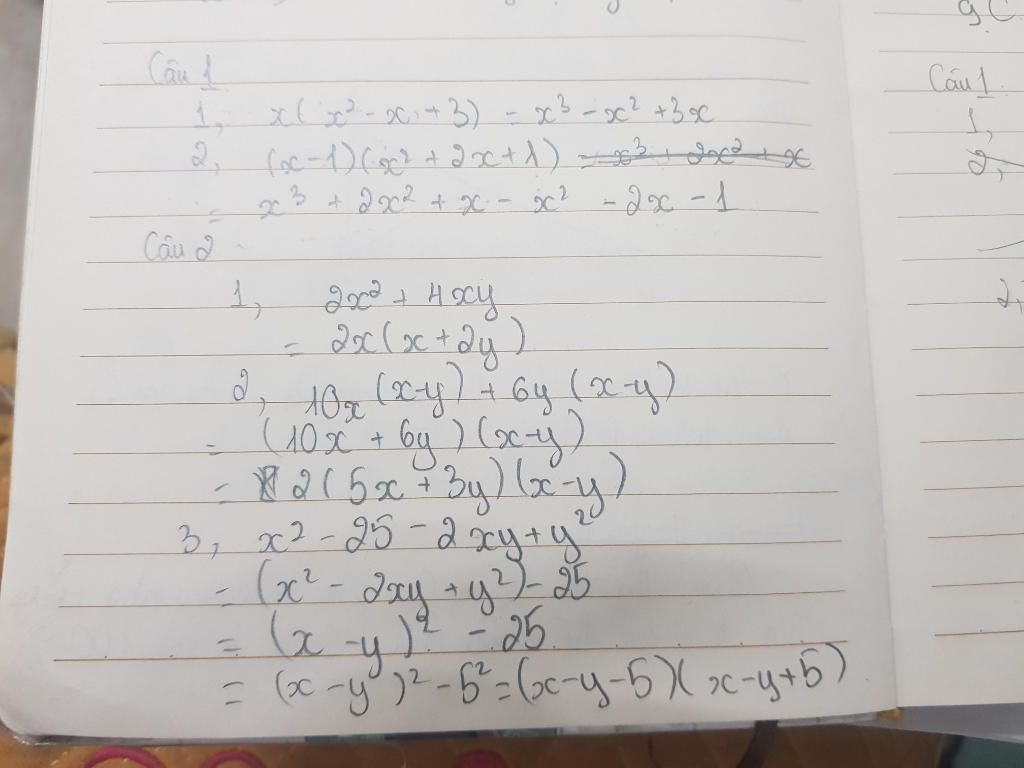 Câu 1
1, x(x² - x + 3) = x³ - x² + 3x
2, (x-1)(x² + 2x + 1) ~~= x³ + 2x² + x~~
= x³ + 2x² + x - x² - 2x - 1
Câu 2
1, 2x² + 4xy
= 2x(x + 2y)
2, 10x(x-y) + 6y(x-y)
= (10x + 6y)(x-y)
= 2(5x + 3y)(x-y)
3, x² - 25 - 2xy + y²
= (x² - 2xy + y²) - 25
= (x - y)² - 25
= (x - y)² - 5² = (x-y-5)(x-y+5)
Câu 1
1,
2,
2,